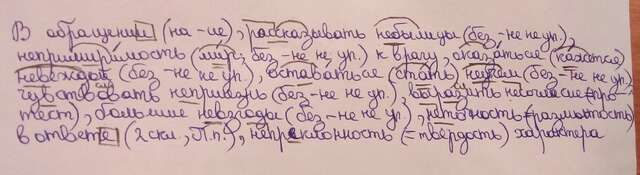 В обращении (на-ие), рассказывать небылицы (без-не не уп.),
непримиримость (мир, без-не не уп.) к врагу, оказаться (кажется)
невеждой (без-не не уп.), оставаться (стать) неучем (без-не не уп.)
чувствовать неприязнь (без-не не уп.), выразить несогласие (=про
тест), большие невзгоды (без-не не уп.), неточность (=размытость)
в ответе (2 скл., П.п.), непреклонность (=твёрдость) характера